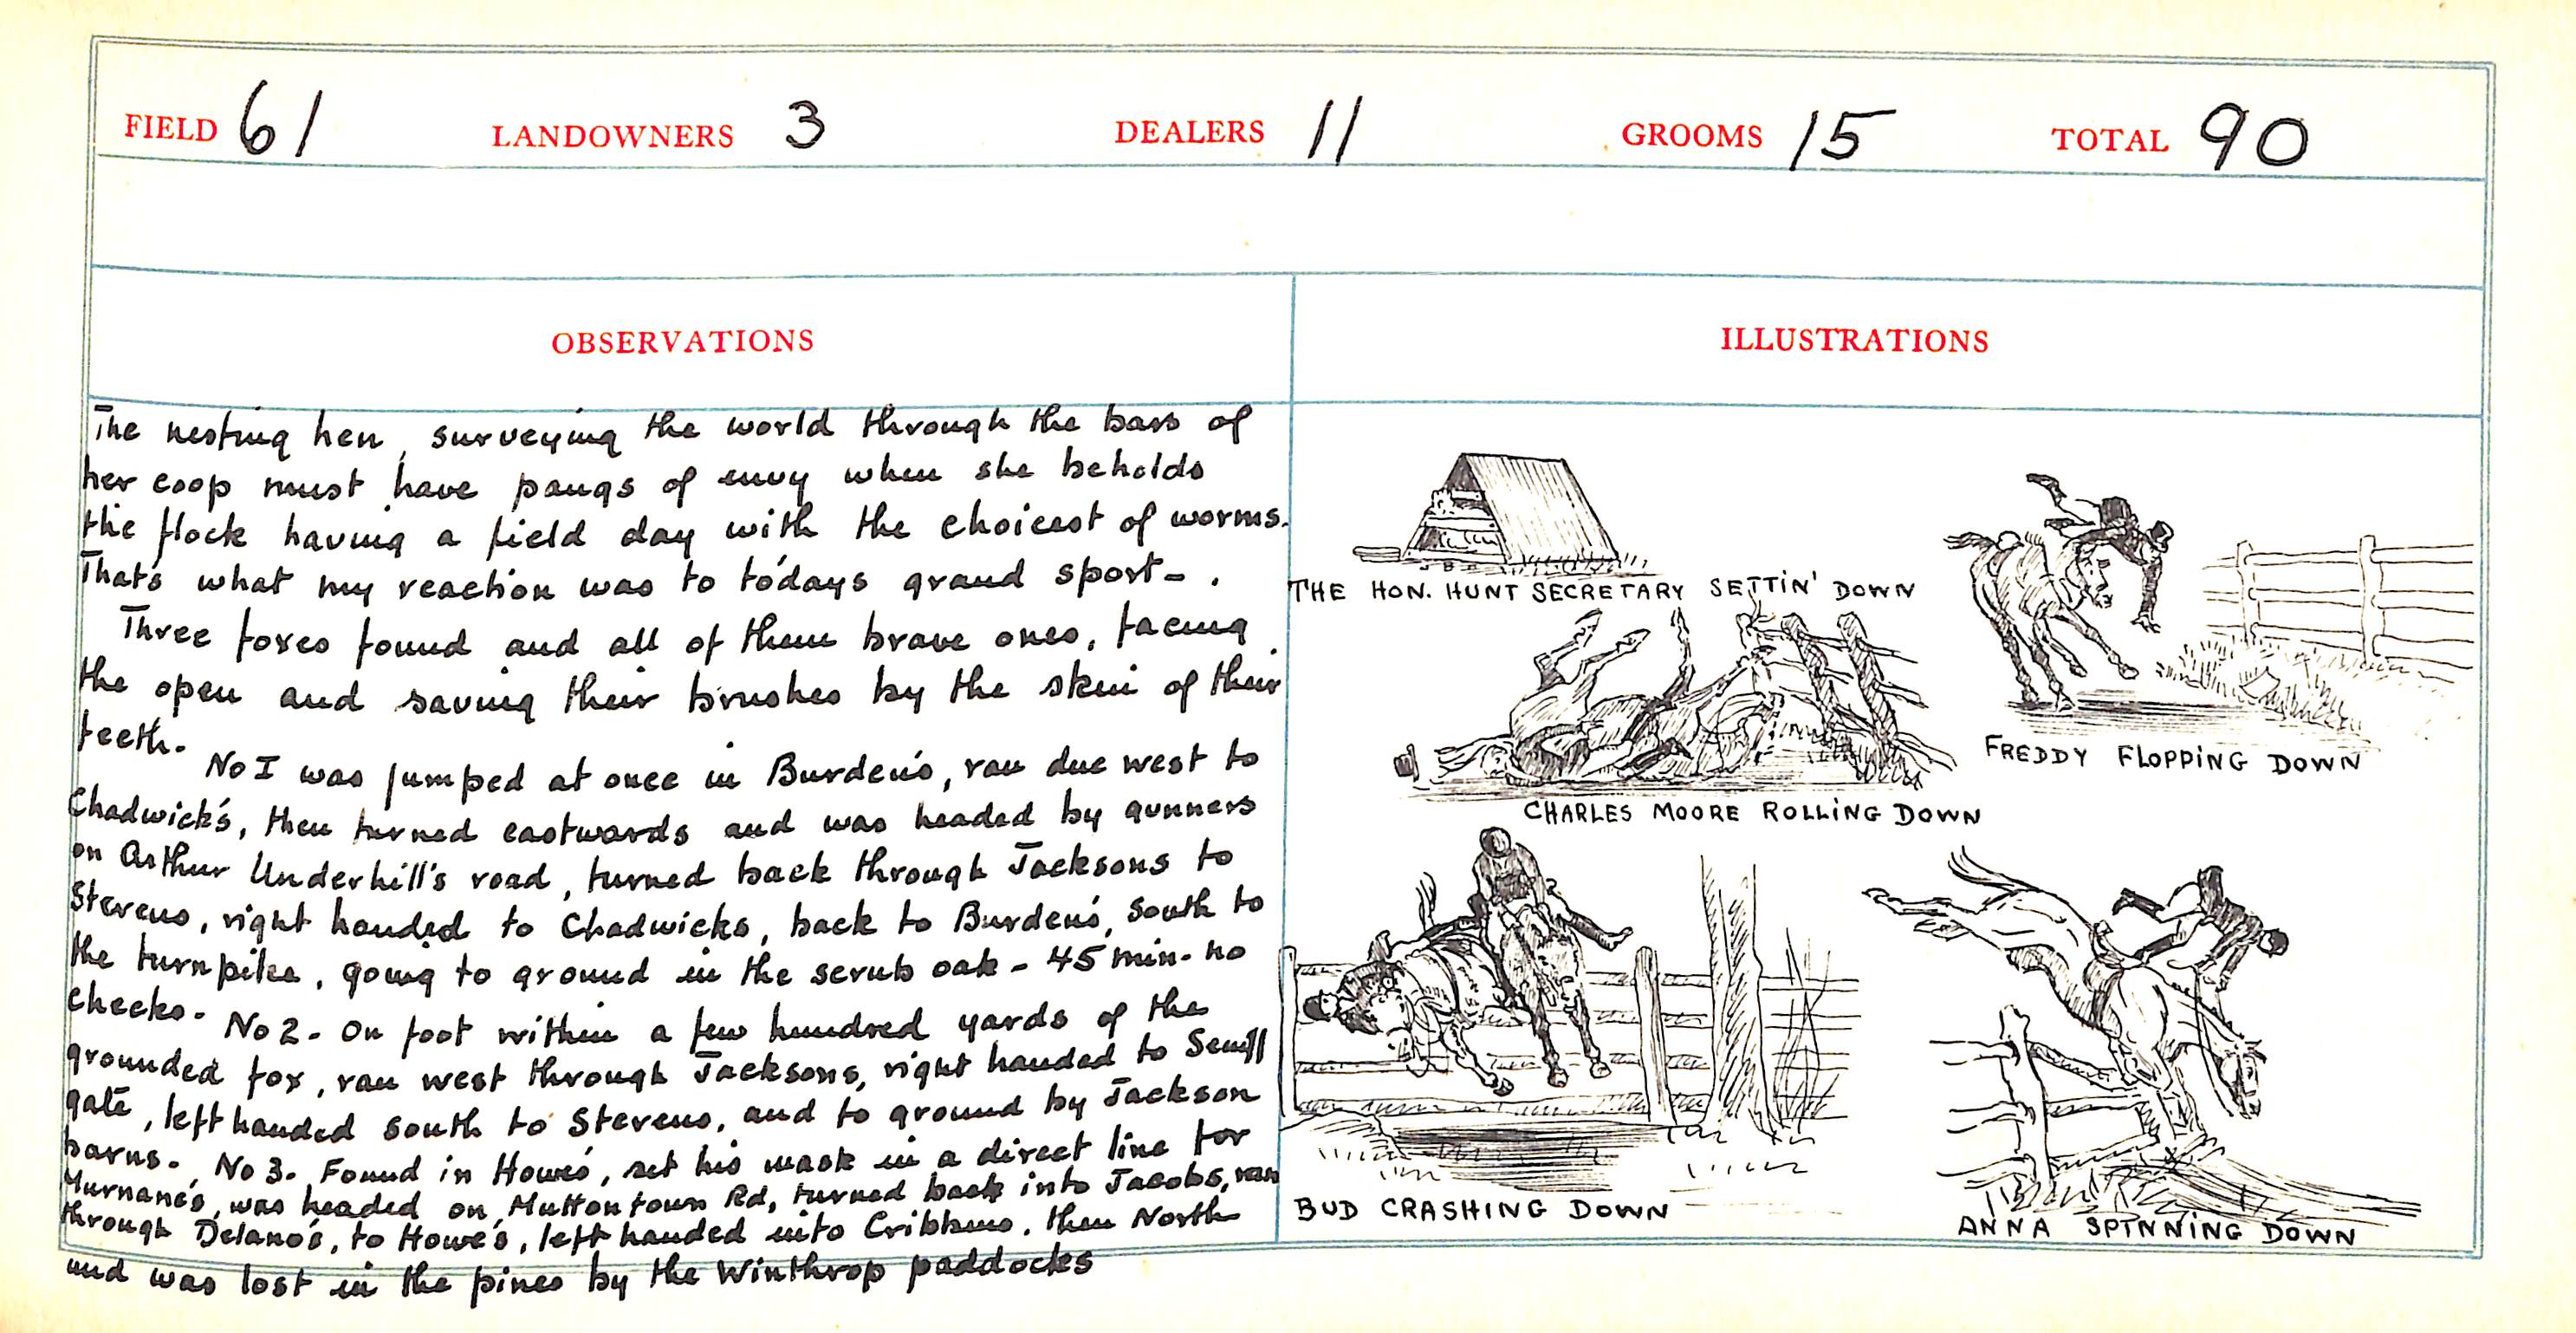 FIELD 61 LANDOWNERS 3 DEALERS 11 GROOMS 15 TOTAL 90
OBSERVATIONS
The nesting hen, surveying the world through the bars of
her coop must have pangs of envy when she beholds
the flock having a field day with the choicest of worms.
That's what my reaction was to today's grand sport-.
Three foxes found and all of them brave ones, facing
the open and saving their brushes by the skin of their
teeth.
No I was jumped at once in Burden's, ran due west to
Chadwick's, then turned eastwards and was headed by gunners
on Arthur Underhill's road, turned back through Jacksons to
Stevens, right handed to Chadwicks, back to Burden's, South to
the turnpike, going to ground in the scrub oak - 45 min - no
checks.
No 2 - On foot within a few hundred yards of the
grounded fox, ran west through Jacksons, right handed to
gate, left handed south to Stevens, and to ground by Jackson
barns. No 3. Found in Howe's, set his mask in a direct line for
Murnane's, was headed on Muttontown Rd, turned back into Jacobs, ran
through Delano's, to Howe's, left handed into Cribbins, then North
and was lost in the pines by the Winthrop paddocks
ILLUSTRATIONS
THE HON. HUNT SECRETARY SETTIN' DOWN
FREDDY FLOPPING DOWN
CHARLES MOORE ROLLING DOWN
BUD CRASHING DOWN
ANNA SPINNING DOWN